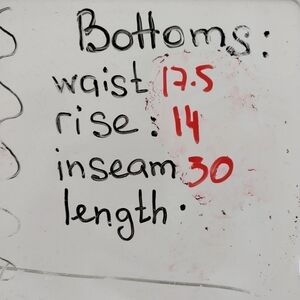 Bottoms:
waist 17.5
rise: 14
inseam 30
length.